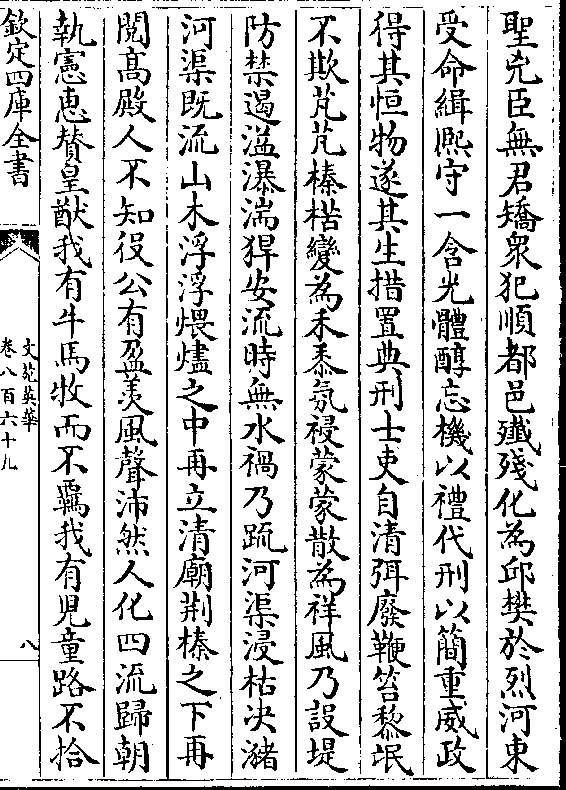 聖兇臣無君矯衆犯順都邑殲殘化為邱樊於烈河東
受命緝熙守一含光體醇忘機以禮代刑以簡重威政
得其恒物遂其生措置典刑士吏自清弭廢鞭笞黎氓
不欺芃芃榛楛變為禾黍氛祲蒙蒙散為祥風乃設堤
防禁遏溢瀑湍猂安流時無水禍乃疏河渠浸枯决瀦
河渠既流山木浮浮煨燼之中再立清廟荆榛之下再
閲髙殿人不知役公有盈羡風聲沛然人化四流歸朝
執憲恵賛皇猷我有牛馬牧而不羈我有児童路不拾
欽定四庫全書
文苑英華
卷八百六十九
八